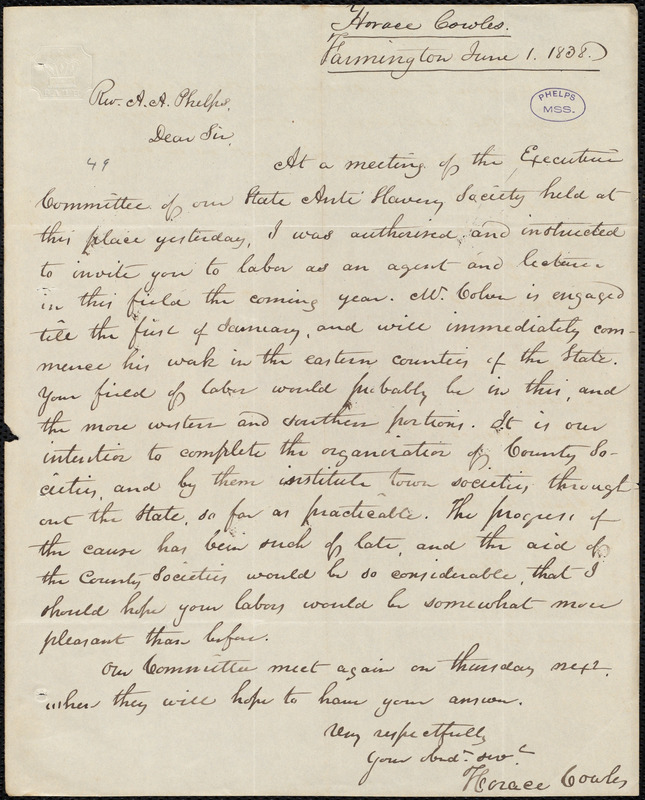 Horace Cowles.
Farmington June 1. 1838.
PHELPS
MSS.
Rev. A. A. Phelps,
Dear Sir,
49
At a meeting of the Executive
Committee of our State Anti Slavery Society held at
this place yesterday, I was authorised and instructed
to invite you to labor as an agent and lecturer
in this field the coming year. Mr. Colver is engaged
till the first of January, and will immediately com-
mence his work in the eastern counties of the State.
Your field of labor would probably be in this, and
the more western and southern portions. It is our
intention to complete the organization of County So-
cieties, and by them institute town societies through
out the State, so far as practicable. The progress of
the cause has been such of late, and the aid of
the County Societies would be so considerable, that I
should hope your labors would be somewhat more
pleasant than before.
Our Committee meet again on thursday next.
when they will hope to have your answer.
Very respectfully
Your obdt. servt.
Horace Cowles